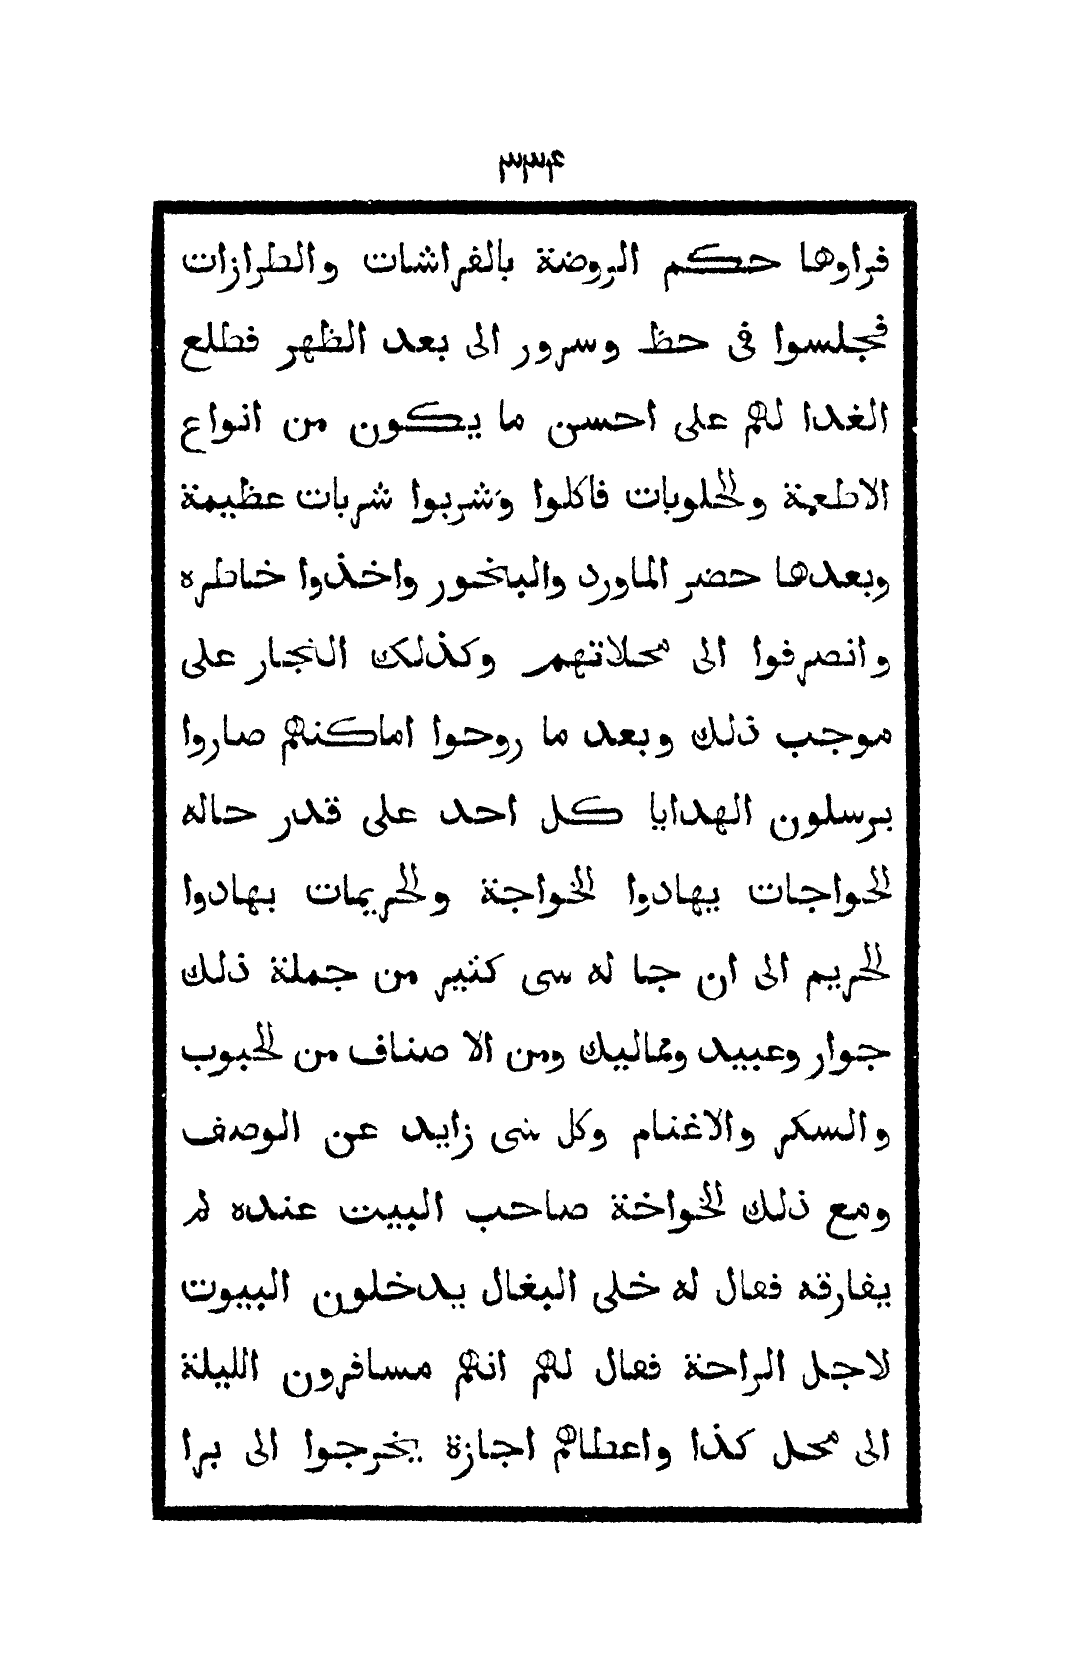 ٣٣٤
فراوها حكم الروضة بالفراشات والطرازات
فجلسوا فى حظ وسرور الى بعد الظهر فطلع
الغدا لهم على احسن ما يكون من انواع
الاطعمة والحلوبات فاكلوا وشربوا شربات عظيمة
وبعدها حضر الماورد والبخور واخذوا خاطره
وانصرفوا الى محلاتهم وكذلك النجار على
موجب ذلك وبعد ما روحوا اماكنهم صاروا
يرسلون الهدايا كل احد على قدر حاله
الحواجات يهادوا الخواجة والحريمات بهادوا
الحريم الى ان جا له سى كثير من جملة ذلك
جوار وعبيد ومماليك ومن الا صناف من الحبوب
والسكر والاغنام وكل شى زايد عن الوصف
ومع ذلك الخواخة صاحب البيت عنده لم
يفارقه فقال له خلى البغال يدخلون البيوت
لاجل الراحة فقال لهم انهم مسافرون الليلة
الى محل كذا واعطاهم اجازة يخرجوا الى برا